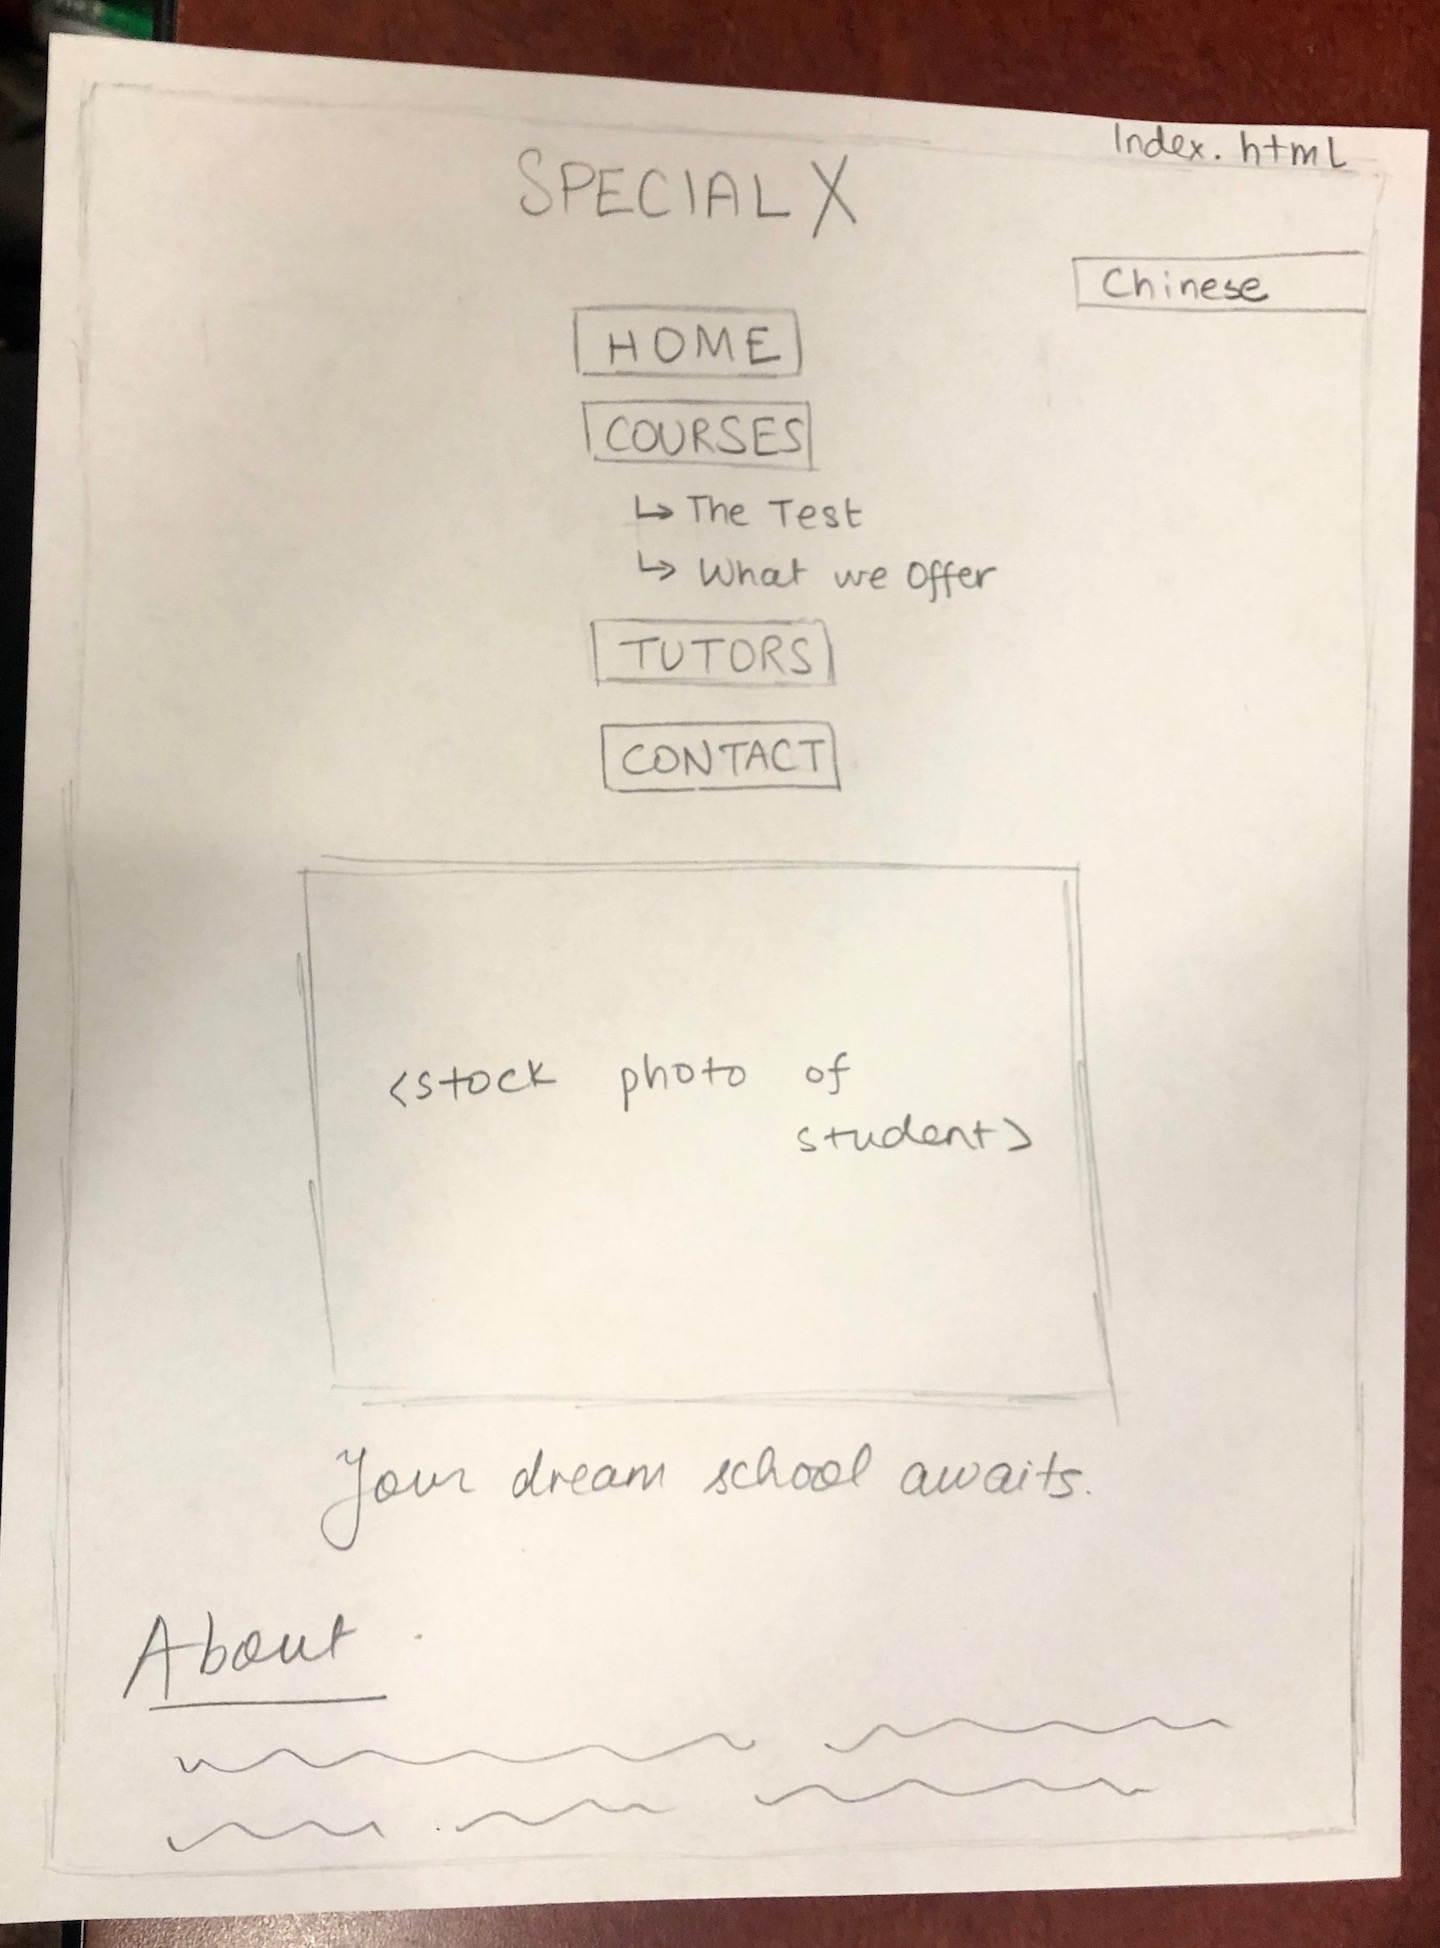 Index.html
SPECIAL X
Chinese
HOME
COURSES
↳ The Test
↳ What we Offer
TUTORS
CONTACT
<stock photo of
student>
Your dream school awaits.
About